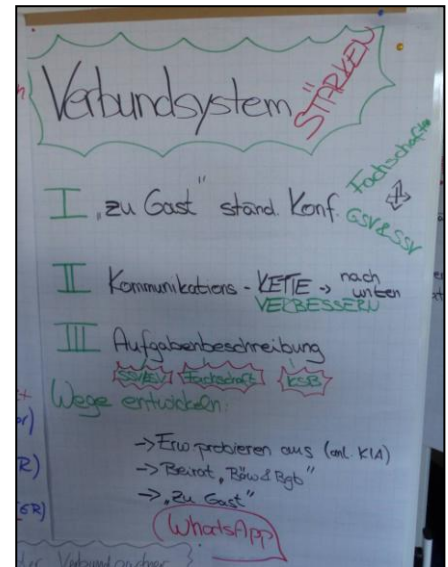 Verbundsystem STÄRKEN
I „zu Gast" ständ. Konf.
Fachschaften
GSV & SSV
II Kommunikations-KETTE → nach unten
VERBESSERN
III Aufgabenbeschreibung
SSV/GSV Fachschaft KSB
Wege entwickeln:
→ probieren aus (anl. KIA)
→ Beirat „Böw & Bgb"
→ „Zu Gast"
WhatsApp
der Verbundpartner